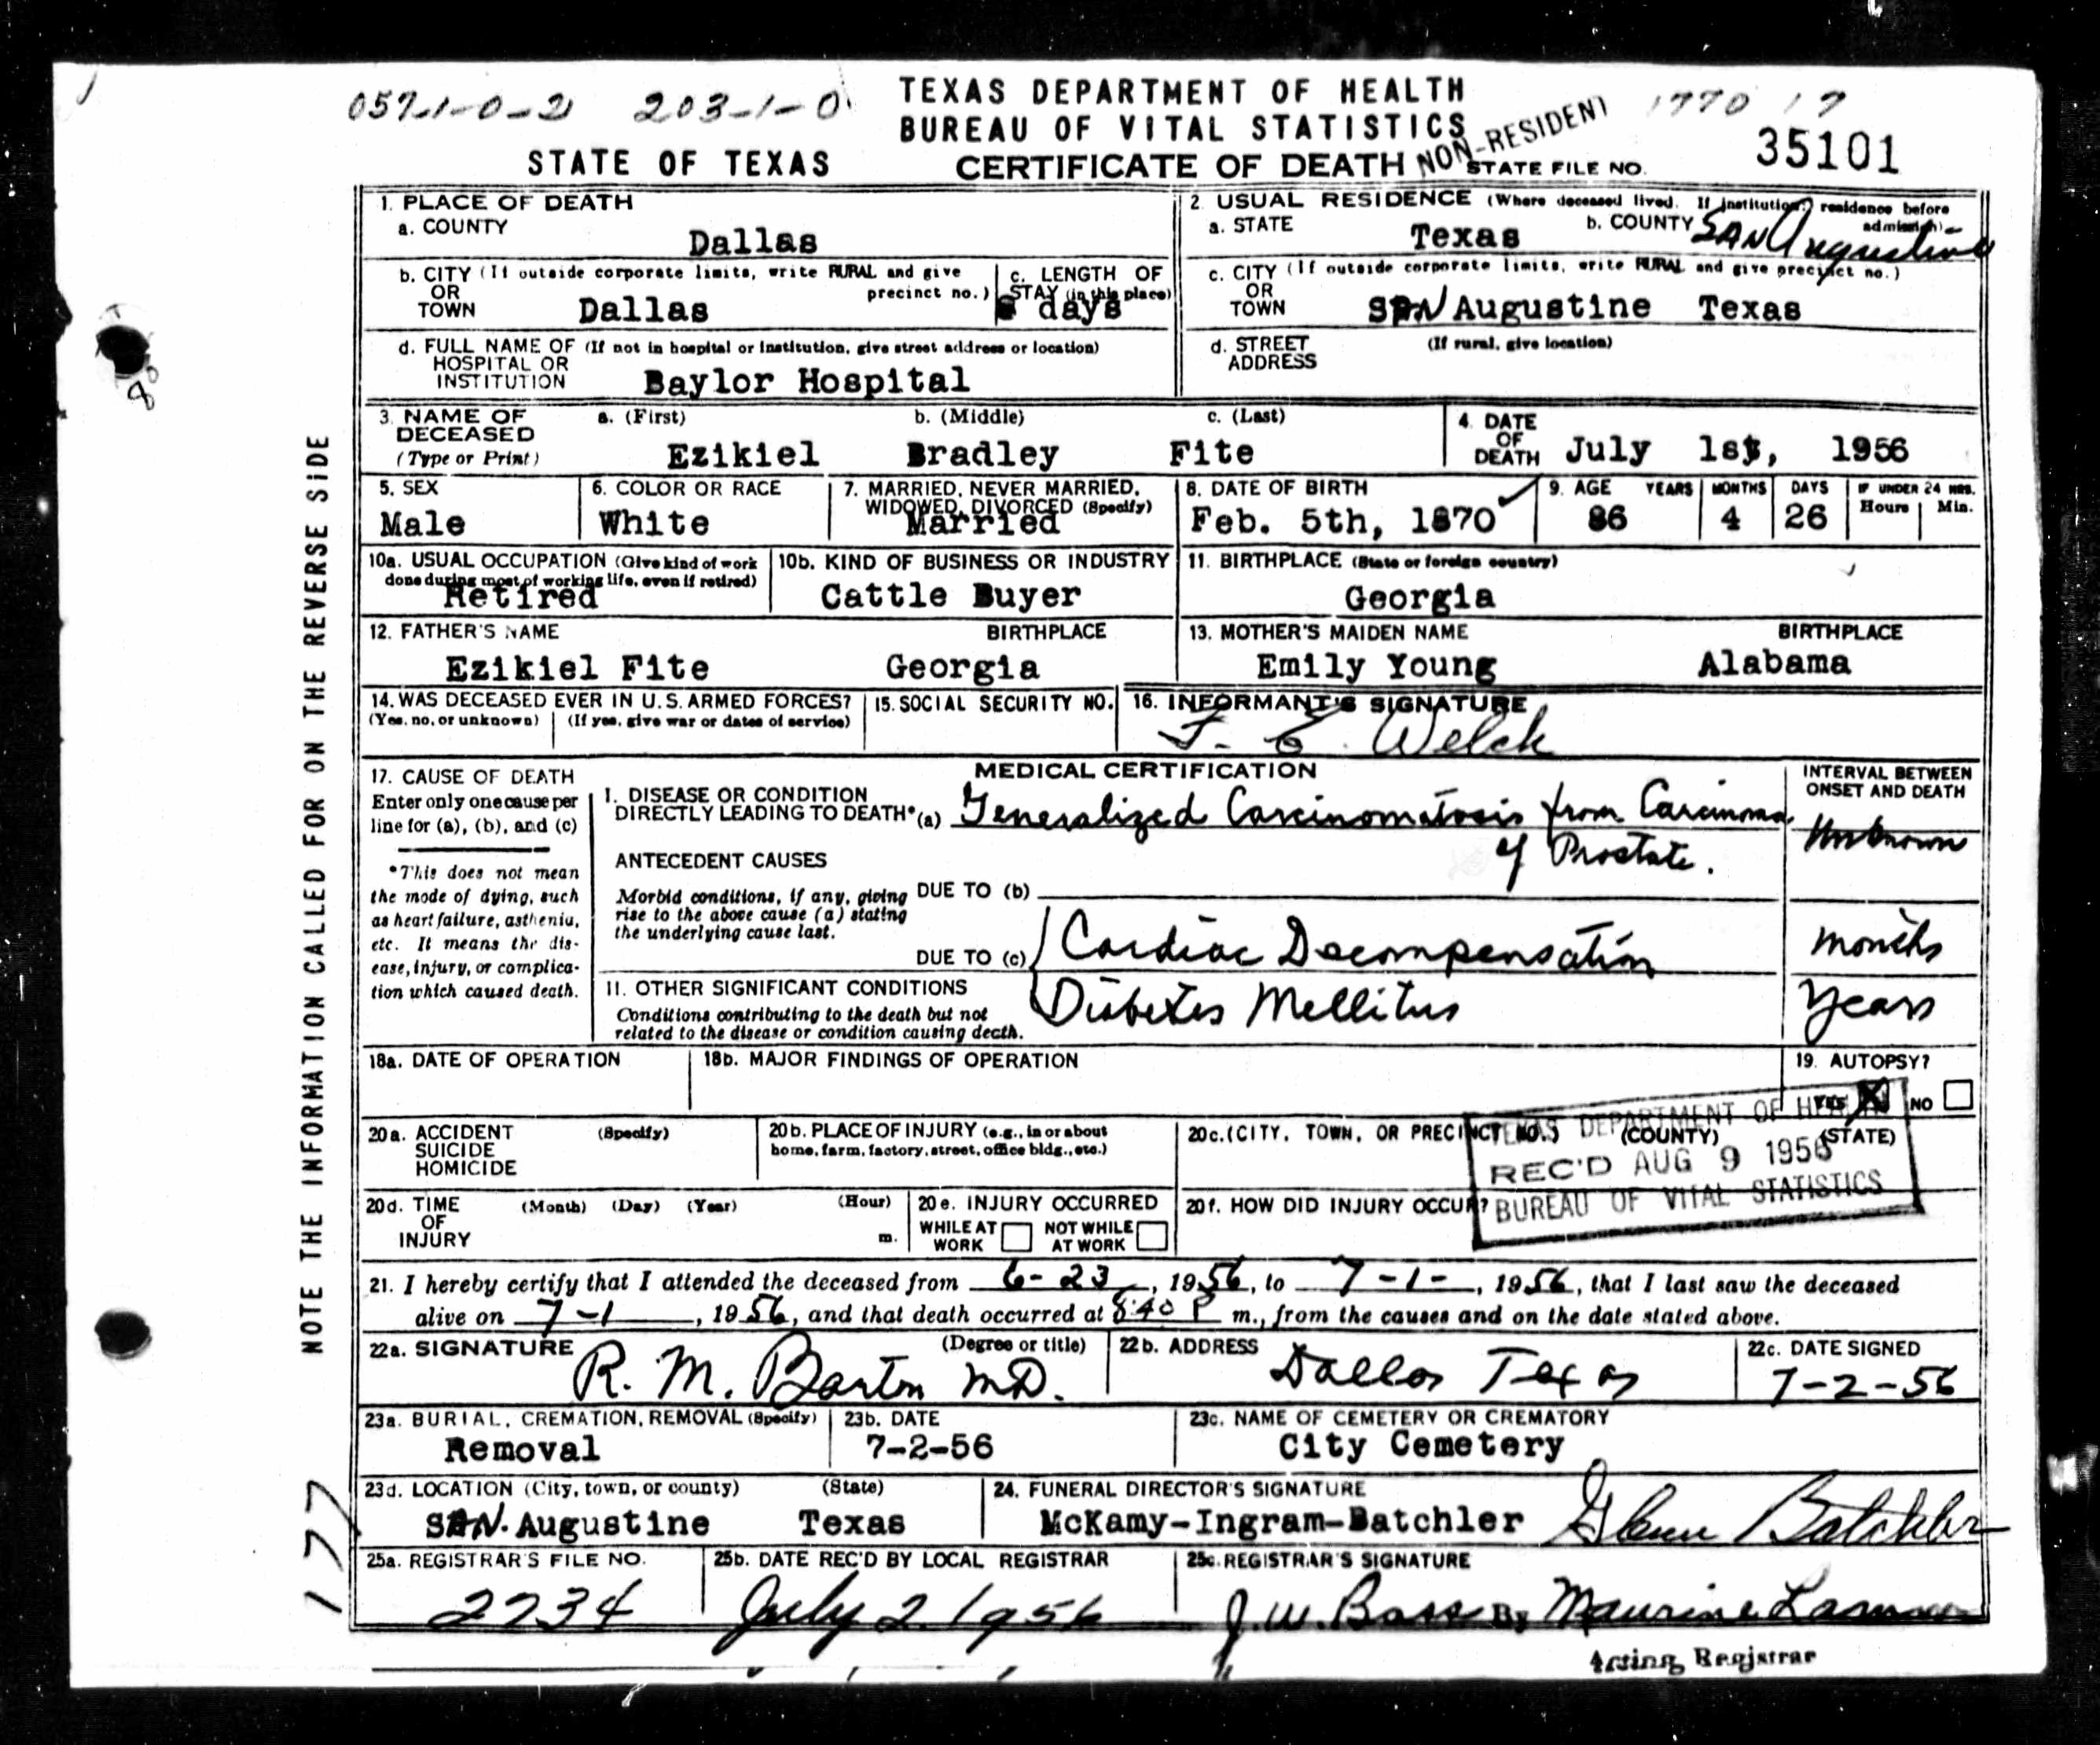 057-1-0-2 203-1-0 TEXAS DEPARTMENT OF HEALTH 1770 17
BUREAU OF VITAL STATISTICS NON-RESIDENT
STATE OF TEXAS CERTIFICATE OF DEATH STATE FILE NO. 35101
1. PLACE OF DEATH
a. COUNTY
Dallas
2. USUAL RESIDENCE (Where deceased lived. If institution: residence before admission).
a. STATE Texas b. COUNTY SAN Augustine
b. CITY (If outside corporate limits, write RURAL and give precinct no.)
OR
TOWN Dallas
c. LENGTH OF
STAY (in this place)
days
c. CITY (If outside corporate limits, write RURAL and give precinct no.)
OR
TOWN SAN Augustine Texas
d. FULL NAME OF (If not in hospital or institution, give street address or location)
HOSPITAL OR
INSTITUTION Baylor Hospital
d. STREET (If rural, give location)
ADDRESS
3. NAME OF a. (First) b. (Middle) c. (Last)
DECEASED
(Type or Print) Ezikiel Bradley Fite
4. DATE
OF
DEATH July 1st, 1956
5. SEX
Male
6. COLOR OR RACE
White
7. MARRIED, NEVER MARRIED,
WIDOWED, DIVORCED (Specify)
Married
8. DATE OF BIRTH
Feb. 5th, 1870
9. AGE YEARS MONTHS DAYS IF UNDER 24 HRS.
Hours Min.
86 4 26
10a. USUAL OCCUPATION (Give kind of work
done during most of working life, even if retired)
Retired
10b. KIND OF BUSINESS OR INDUSTRY
Cattle Buyer
11. BIRTHPLACE (State or foreign country)
Georgia
12. FATHER'S NAME BIRTHPLACE
Ezikiel Fite Georgia
13. MOTHER'S MAIDEN NAME BIRTHPLACE
Emily Young Alabama
14. WAS DECEASED EVER IN U.S. ARMED FORCES?
(Yes, no, or unknown) (If yes, give war or dates of service)
15. SOCIAL SECURITY NO.
16. INFORMANT'S SIGNATURE
Welch
17. CAUSE OF DEATH
Enter only one cause per
line for (a), (b), and (c)
*This does not mean
the mode of dying, such
as heart failure, asthenia,
etc. It means the dis-
ease, injury, or complica-
tion which caused death.
MEDICAL CERTIFICATION
I. DISEASE OR CONDITION
DIRECTLY LEADING TO DEATH* (a) Generalized Carcinomatosis from Carcinoma
of Prostate.
ANTECEDENT CAUSES
Morbid conditions, if any, giving DUE TO (b)
rise to the above cause (a) stating
the underlying cause last.
DUE TO (c) Cardiac Decompensation
II. OTHER SIGNIFICANT CONDITIONS
Conditions contributing to the death but not
related to the disease or condition causing death.
Diabetes Mellitus
INTERVAL BETWEEN
ONSET AND DEATH
Unknown
months
Years
18a. DATE OF OPERATION
18b. MAJOR FINDINGS OF OPERATION
19. AUTOPSY?
YES X NO
20a. ACCIDENT (Specify)
SUICIDE
HOMICIDE
20b. PLACE OF INJURY (e.g., in or about
home, farm, factory, street, office bldg., etc.)
20c. (CITY, TOWN, OR PRECINCT NO.) (COUNTY) (STATE)
TEXAS DEPARTMENT OF HEALTH
REC'D AUG 9 1956
BUREAU OF VITAL STATISTICS
20d. TIME (Month) (Day) (Year) (Hour)
OF
INJURY m.
20e. INJURY OCCURRED
WHILE AT NOT WHILE
WORK AT WORK
20f. HOW DID INJURY OCCUR?
21. I hereby certify that I attended the deceased from 6-23, 1956, to 7-1-, 1956, that I last saw the deceased
alive on 7-1, 1956, and that death occurred at 8:40 P m., from the causes and on the date stated above.
22a. SIGNATURE (Degree or title)
R. M. Barton MD.
22b. ADDRESS
Dallas Texas
22c. DATE SIGNED
7-2-56
23a. BURIAL, CREMATION, REMOVAL (Specify)
Removal
23b. DATE
7-2-56
23c. NAME OF CEMETERY OR CREMATORY
City Cemetery
23d. LOCATION (City, town, or county) (State)
SAN. Augustine Texas
24. FUNERAL DIRECTOR'S SIGNATURE
McKamy-Ingram-Batchler Glenn Batchler
25a. REGISTRAR'S FILE NO.
2234
25b. DATE REC'D BY LOCAL REGISTRAR
July 2 1956
25c. REGISTRAR'S SIGNATURE
J. W. Bass By Maurine
Acting Registrar
NOTE THE INFORMATION CALLED FOR ON THE REVERSE SIDE
177